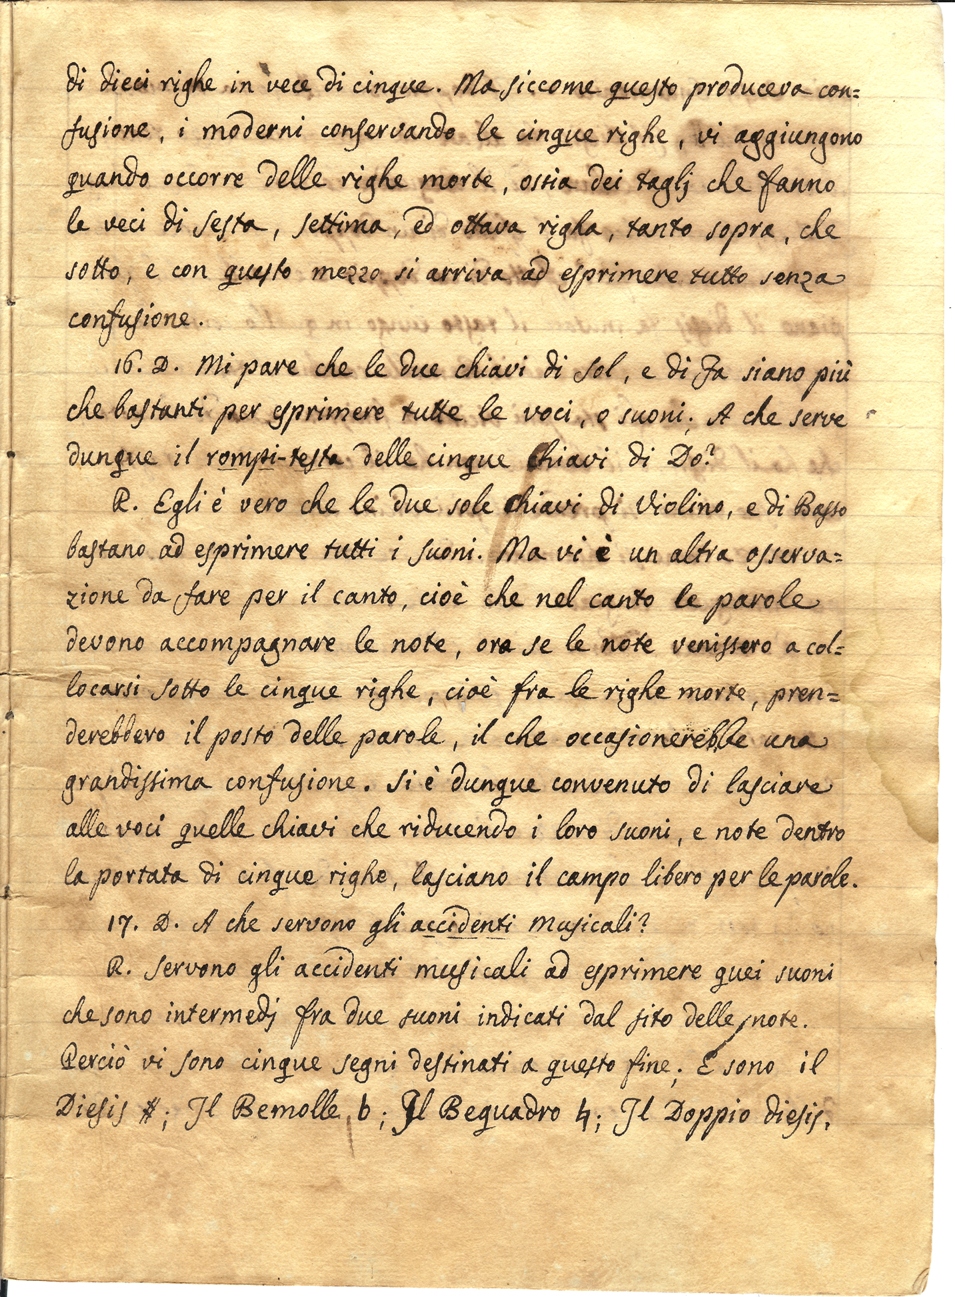 di dieci righe in vece di cinque. Ma siccome questo produceva con=
fusione, i moderni conservando le cinque righe, vi aggiungono
quando occorre delle righe morte, ossia dei taglj che fanno
le veci di sesta, settima, ed ottava righa, tanto sopra, che
sotto, e con questo mezzo si arriva ad esprimere tutto senza
confusione.
16. D. Mi pare che le due chiavi di Sol, e di Fa siano più
che bastanti per esprimere tutte le voci, o suoni. A che serve
dunque il rompi-testa delle cinque Chiavi di Do?
R. Egli è vero che le due sole Chiavi di Violino, e di Basso
bastano ad esprimere tutti i suoni. Ma vi è un altra osserva=
zione da fare per il canto, cioè che nel canto le parole
devono accompagnare le note, ora se le note venissero a col=
locarsi sotto le cinque righe, cioè fra le righe morte, pren=
derebbero il posto delle parole, il che occasionerebbe una
grandissima confusione. Si è dunque convenuto di lasciare
alle voci quelle chiavi che riducendo i loro suoni, e note dentro
la portata di cinque righe, lasciano il campo libero per le parole.
17. D. A che servono gli accidenti Musicali?
R. Servono gli accidenti musicali ad esprimere quei suoni
che sono intermedj fra due suoni indicati dal sito delle note.
Perciò vi sono cinque segni destinati a questo fine; E sono il
Diesis #; Il Bemolle b; Il Bequadro ♮; Il Doppio diesis,